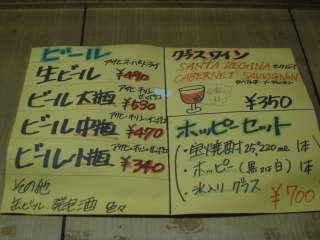 ビール
生ビール アサヒスーパードライ ¥490
ビール大瓶 アサヒ・キリン ¥530
ビール中瓶 ¥470
ビール小瓶 ¥340
その他
缶ビール、発泡酒 色々
グラスワイン
SANTA REGINA
CABERNET SAUVIGNON
¥350
ホッピーセット
・宝焼酎25° 220ml 1本
・ホッピー(黒or白)1本
・氷入りグラス
¥700